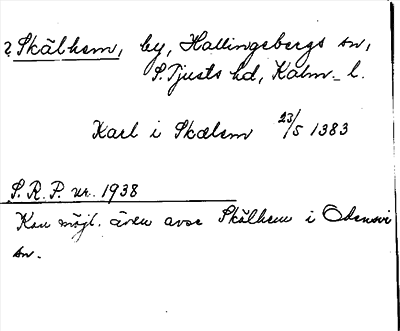 ? Skälhem, by, Hallingebergs sn,
S. Tjusts hd, Kalm. l.
Karl i Skælem 23/5 1383
S.R.P. nr. 1938
Kan möjl. även avse Skälhem i Odensvi
sn.